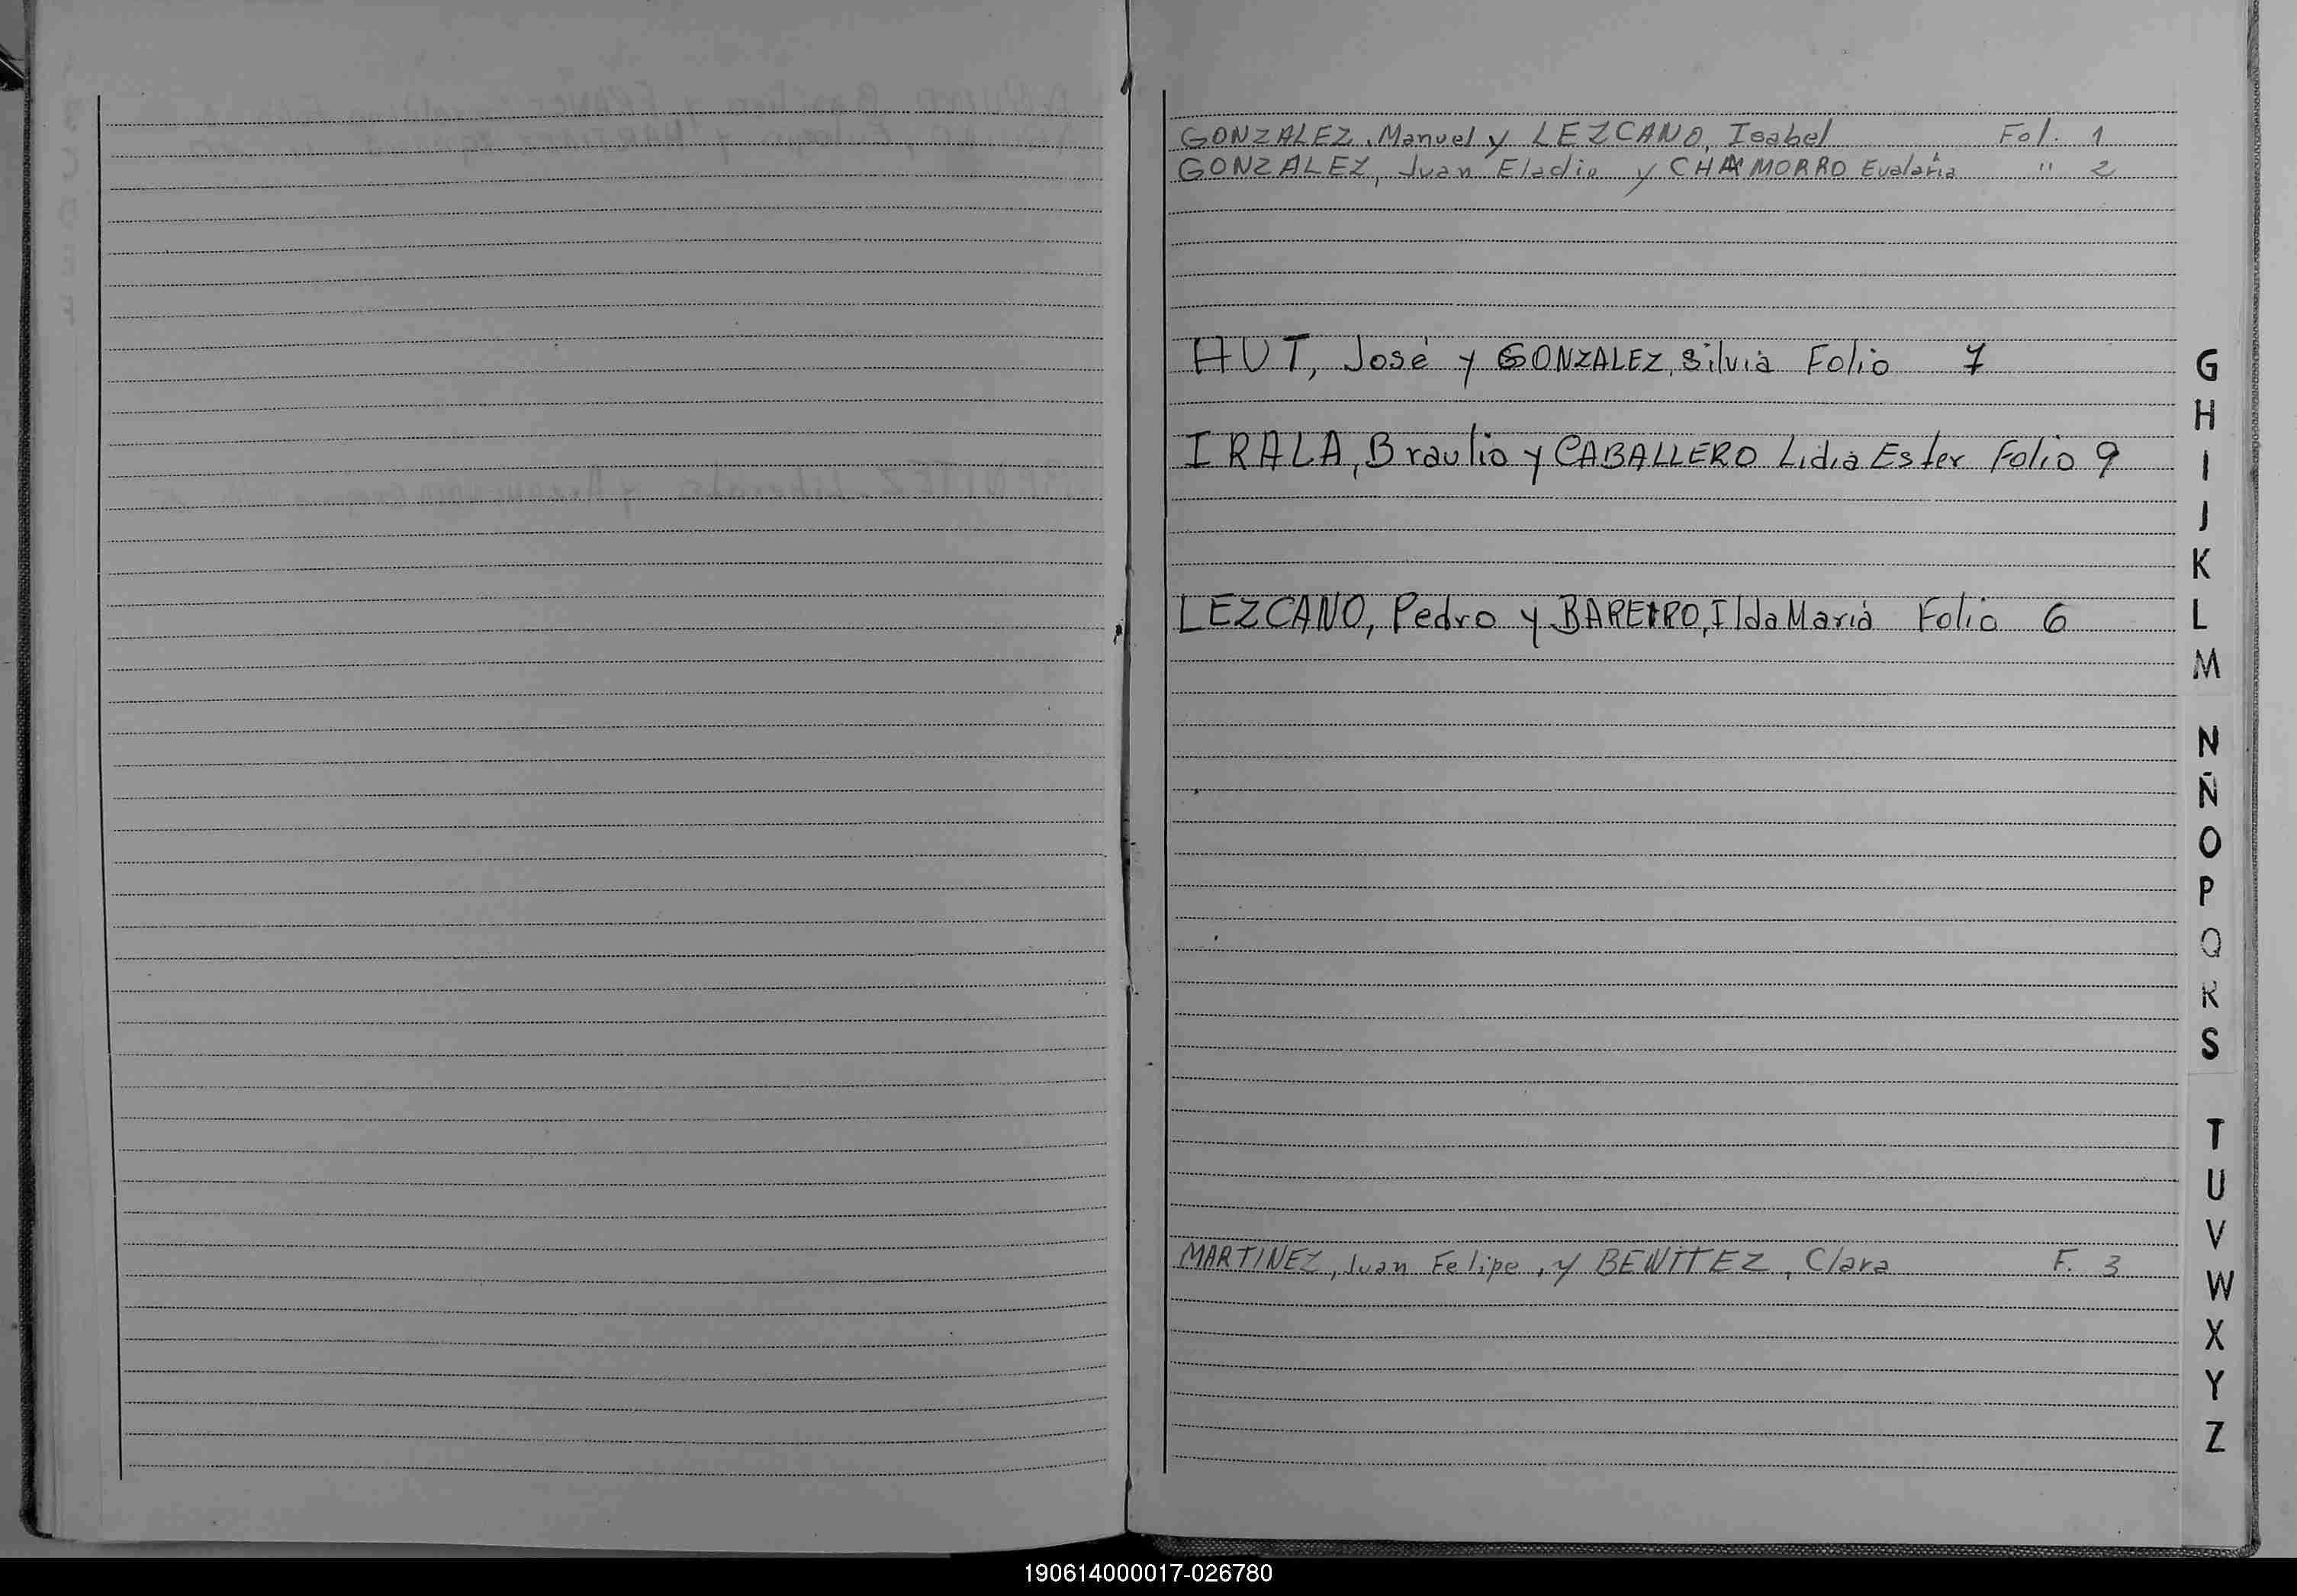 GONZALEZ, Manuel y LEZCANO, Isabel Fol. 1
GONZALEZ, Juan Eladio y CHAMORRO Eualaria " 2
HUT, José y GONZALEZ, Silvia Folio 7
IRALA, Braulio y CABALLERO Lidia Ester Folio 9
LEZCANO, Pedro y BAREIRO, Ilda Maria Folio 6
MARTINEZ, Juan Felipe, y BENITEZ, Clara F. 3
G
H
I
J
K
L
M
N
Ñ
O
P
Q
R
S
T
U
V
W
X
Y
Z
190614000017-026780